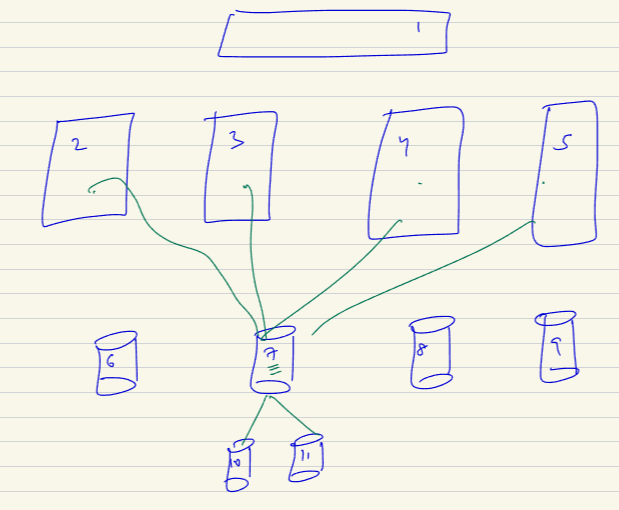 1
2
3
4
5
6
7
8
9
10
11